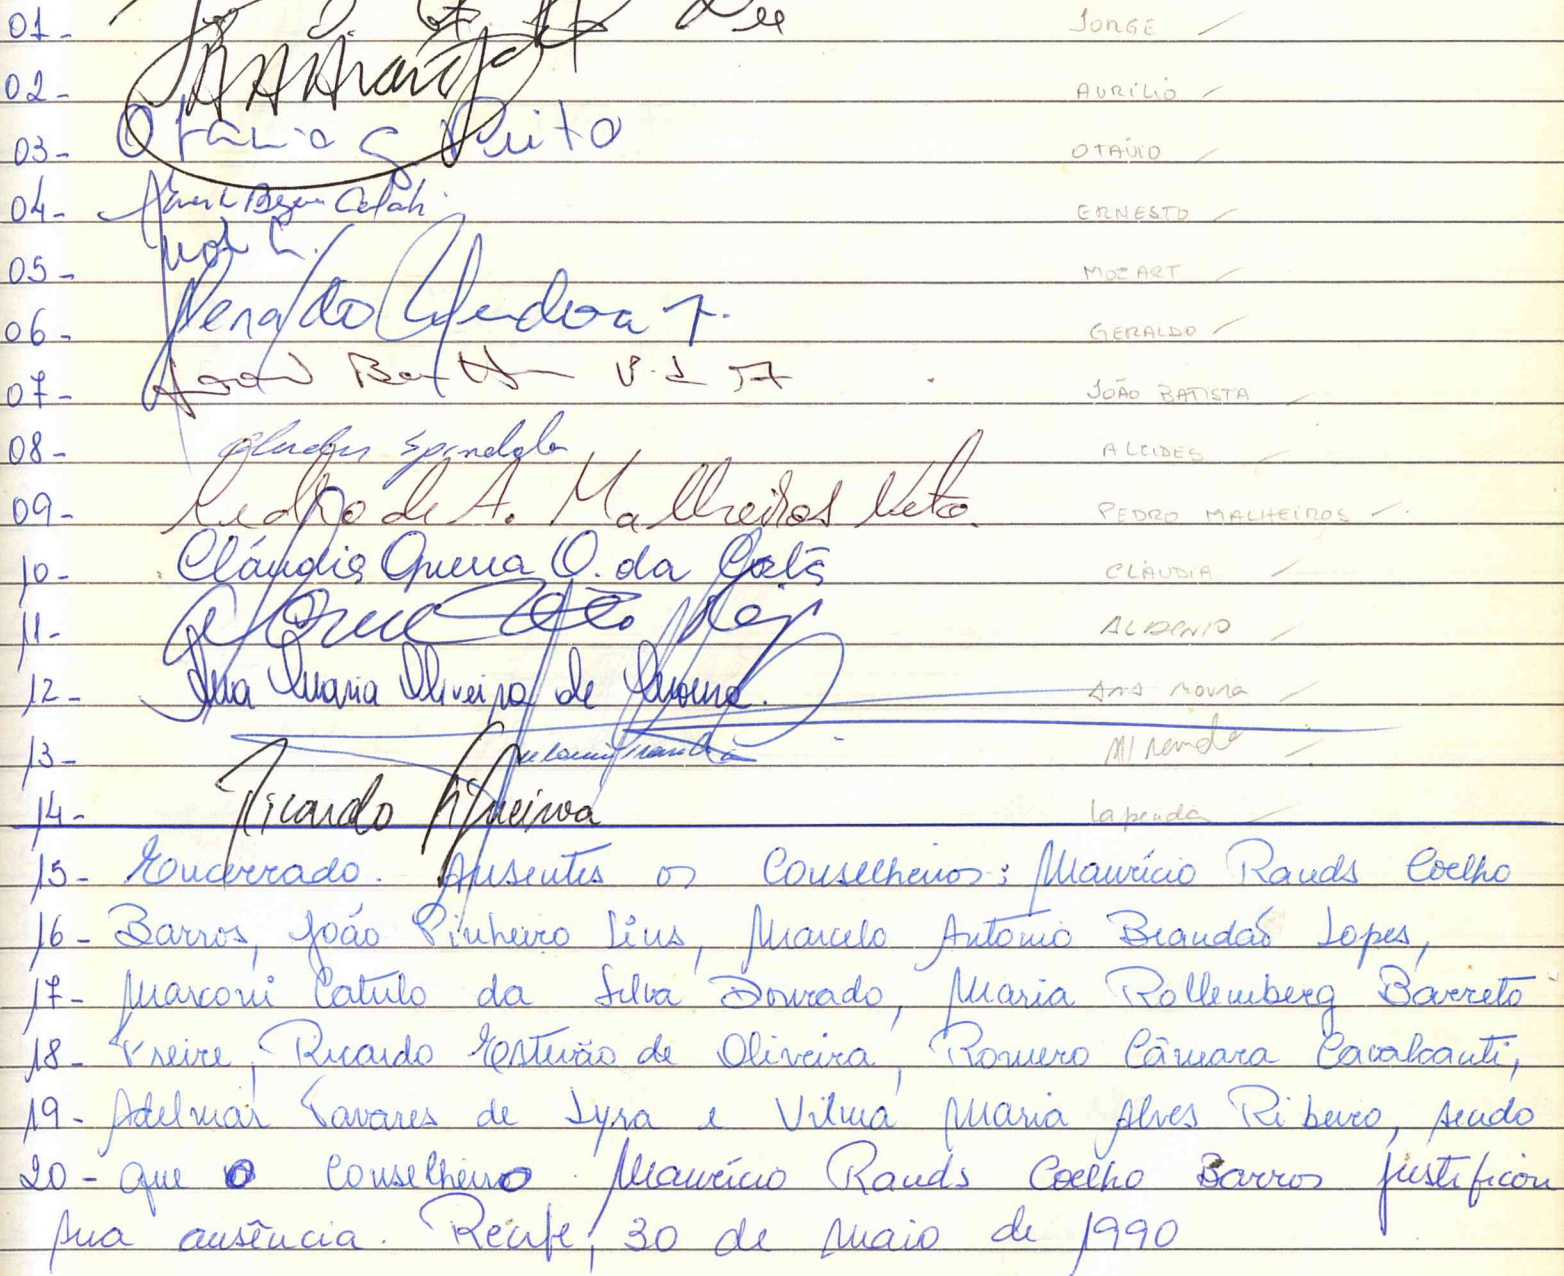 01- JORGE
02- AURÍLIO
03- Otávio Brito OTAVIO
04- ERNESTO
05- MOZART
06- GERALDO
07- João JOÃO BATISTA
08- Alcides Spindola ALCIDES
09- Pedro de A. Malheiros Neto. PEDRO MALHEIROS
10- Cláudia O. da Costa CLÁUDIA
11- ALDENIO
12- Ana Maria Oliveira de Moura. ANA MOURA
13- Miranda
14- Ricardo Lapenda
15- Encerrado. Ausentes os Conselheiros: Maurício Rands Coelho
16- Barros, João Pinheiro Lins, Marcelo Antonio Brandão Lopes,
17- Marconi Catulo da Silva Dourado, Maria Rollemberg Barreto
18- Freire, Ricardo Estevão de Oliveira, Romero Câmara Cavalcanti,
19- Adelmar Tavares de Lyra e Vilma Maria Alves Ribeiro, sendo
20- que o Conselheiro Maurício Rands Coelho Barros justificou
sua ausência. Recife, 30 de Maio de 1990